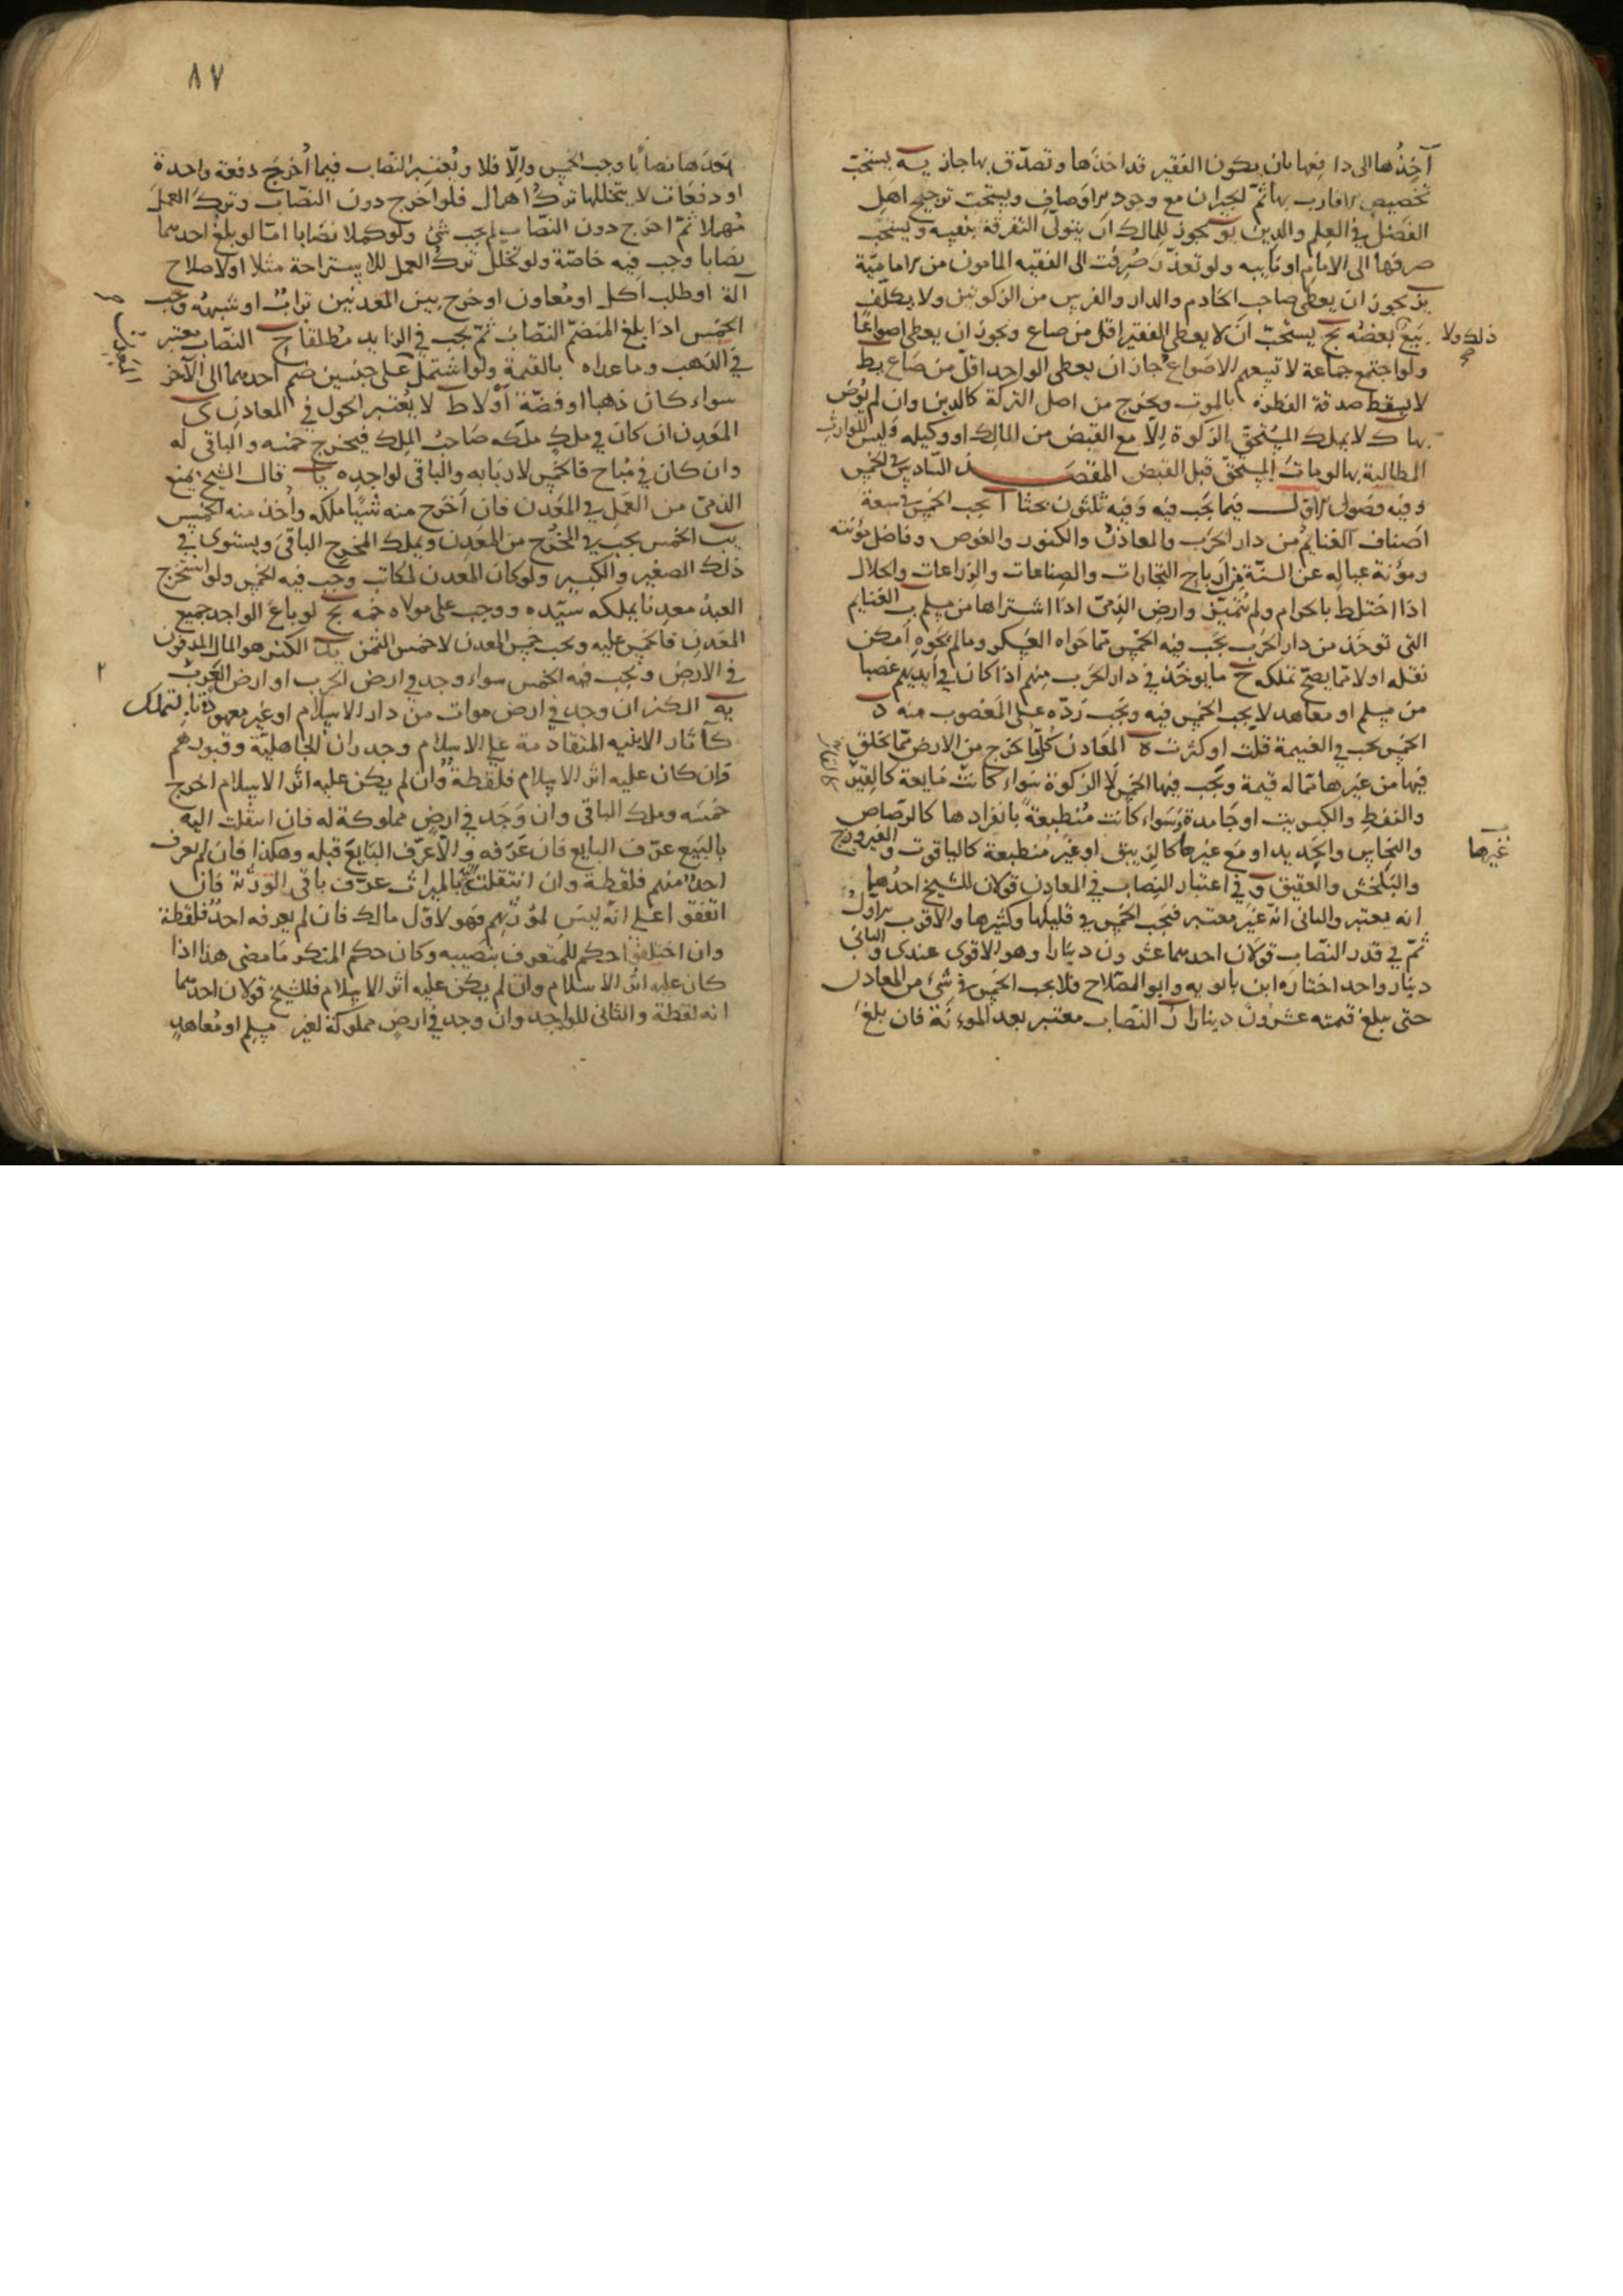 آخذها الى دافعها بان يكون الفقير قد اخذها وتصدق بها جاز يه يستحب
تخصيص الاقارب بها ثم الجيران مع وجود الاوصاف ويستحب ترجيح اهل
الفضل في العلم والدين يو يجوز للمالك ان يتولى التفرقة بنفسه ويستحب
صرفها الى الامام او نايبه ولو تعذر صرفت الى الفقيه المامون من الامامية
يز يجوز ان يعطى صاحب الخادم والدار والفرس من الزكوتين ولا يكلف
ذلك ولا
بيع بعضه يح يستحب ان لا يعطى الفقير اقل من صاع ويجوز ان يعطى اصواعا
ولو اجتمع جماعة لا تسعهم الاصواع جاز ان يعطى الواحد اقل من صاع يط
لا يسقط صدقة الفطرة بالموت ويخرج من اصل التركة كالدين وان لم يوص
بها ك لا يملك المستحق الزكوة الا مع القبض من المالك او وكيله وليس للوارث
المطالبة بها لو مات المستحق قبل القبض المقصد السادس في الخمس
وفيه فصول الاول فيما يجب فيه وفيه ثلثون بحثا ا يجب الخمس في سبعة
اصناف الغنايم من دار الحرب والمعادن والكنوز والغوص وفاضل مؤنته
ومؤنة عياله عن السنة من ارباح التجارات والصناعات والزراعات والحلال
اذا اختلط بالحرام ولم يتميز وارض الذمى اذا اشتراها من مسلم ب الغنايم
التى توخذ من دار الحرب يجب فيه الخمس مما حواه العسكر وما لم يحوه امكن
نقله او لا مما يصح تملكه ج ما يوخذ في دار الحرب منهم اذا كان في ايديهم غصبا
من مسلم او معاهد لا يجب الخمس فيه ويجب رده على المغصوب منه د
الخمس يجب في الغنيمة قلت او كثرت ه المعادن كلما يخرج من الارض مما يخلق
فيها من غيرها مما له قيمة ويجب فيها الخمس لا الزكوة سواء كانت مايعة كالقير
والنفط والكبريت او جامدة وسواء كانت منطبعة بانفرادها كالرصاص
والنحاس والحديد او مع غيرها كالزيبق او غير منطبعة كالياقوت والفيروزج
غيرها
والبلخش والعقيق و في اعتبار النصاب في المعادن قولان للشيخ احدهما
انه يعتبر والثانى انه غير معتبر فيجب الخمس في قليلها وكثيرها والاقرب الاول
ثم في قدر النصاب قولان احدهما عشرون دينارا وهو الاقوى عندى والثانى
دينار واحد اختاره ابن بابويه وابو الصلاح فلا يجب الخمس في شئ من المعادن
حتى يبلغ قيمته عشرون دينارا ز النصاب معتبر بعد المؤنة فان بلغ
٨٧
بعدها نصابا وجب الخمس والا فلا ويعتبر النصاب فيما اخرج دفعة واحدة
او دفعات لا يتخللها ترك اهمال فلو اخرج دون النصاب وترك العمل
مهملا ثم اخرج دون النصاب لم يجب شئ ولو كملا نصابا اما لو بلغ احدهما
نصابا وجب فيه خاصة ولو تخلل ترك العمل للاستراحة مثلا او لاصلاح
الة او طلب اكل او معاون او خرج بين المعدنين تراب او شبهه وجب
الخمس اذا بلغ المنضم النصاب ثم يجب في الزايد مطلقا ح النصاب معتبر
في الذهب وما عداه بالقيمة ولو اشتمل على جنسين ضم احدهما الى الآخر
سواء كان ذهبا او فضة او لا ط لا يعتبر الحول في المعادن ى
المعدن ان كان في ملك ملكه صاحب الملك فيخرج خمسه والباقى له
وان كان في مباح فالخمس لاربابه والباقى لواجده يا قال الشيخ يمنع
الذمى من العمل في المعدن فان اخرج منه شيئا ملكه واخذ منه الخمس
يب الخمس يجب في المخرج من المعدن ويملك المخرج الباقى ويستوى في
ذلك الصغير والكبير ولو كان المعدن لمكاتب وجب فيه الخمس ولو استخرج
العبد معدنا يملكه سيده ووجب على مولاه خمسه يج لو باع الواجد جميع
المعدن فالخمس عليه ويجب خمس المعدن لا خمس الثمن يد الكنز هو المال المدفون
في الارض ويجب فيه الخمس سواء وجد في ارض الحرب او ارض العرب
يه الكنز ان وجد في ارض موات من دار الاسلام او غير معهودة بالتملك
كآثار الابنيه المتقادمة على الاسلام وجدران الجاهلية وقبورهم
فان كان عليه اثر الاسلام فلقطة وان لم يكن عليه اثر الاسلام اخرج
خمسه وملك الباقى وان وجد في ارض مملوكة له فان انتقلت اليه
بالبيع عرف البايع فان عرفه والا عرف البايع قبله وهكذا فان لم يعرف
احد منهم فلقطة وان انتقلت بالميراث عرف باقى الورثة فان
اتفقوا على انه ليس لمورثهم فهو لاول مالك فان لم يعرفه احد فلقطة
وان اختلفوا حكم للمتعرف بنصيبه وكان حكم المنكر ما مضى هذا اذا
كان عليه اثر الاسلام وان لم يكن عليه اثر الاسلام فللشيخ قولان احدهما
انه لقطة والثانى للواجد وان وجد في ارض مملوكة لغير مسلم او معاهد